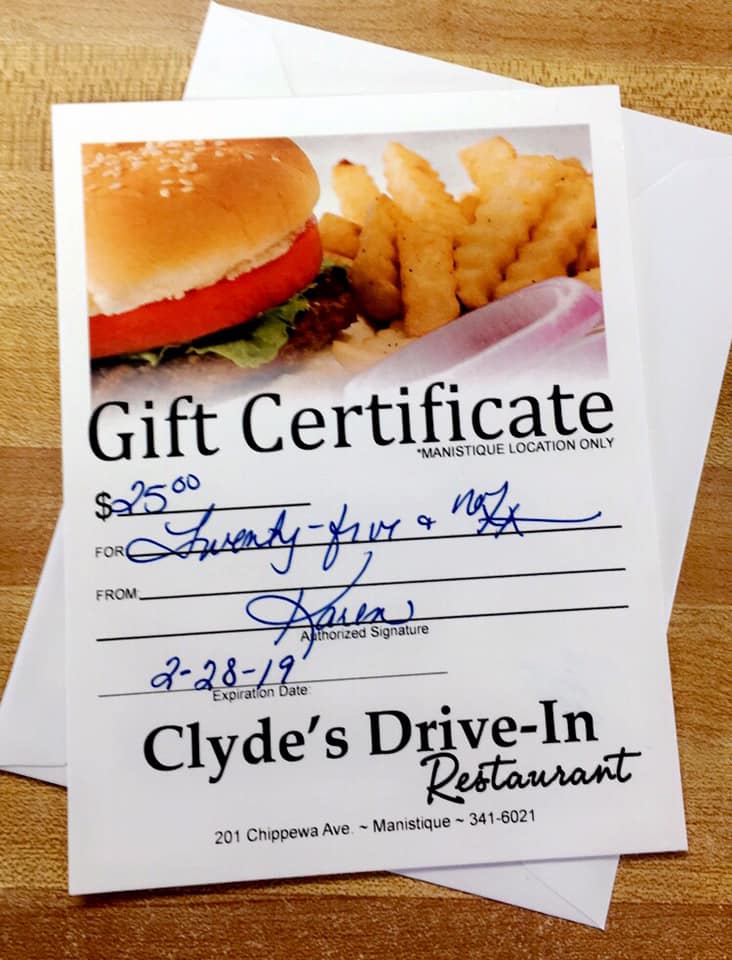 Gift Certificate
*MANISTIQUE LOCATION ONLY
$25.00
FOR Twenty-five & no/xx
FROM:
Karen
Authorized Signature
2-28-19
Expiration Date:
Clyde's Drive-In
Restaurant
201 Chippewa Ave. ~ Manistique ~ 341-6021